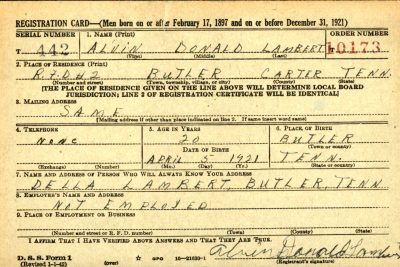 REGISTRATION CARD—(Men born on or after February 17, 1897 and on or before December 31, 1921)
SERIAL NUMBER 1. NAME (Print) ORDER NUMBER
T 442 ALVIN DONALD LAMBERT 10173
(First) (Middle) (Last)
2. PLACE OF RESIDENCE (Print)
R.F.D #2 BUTLER CARTER TENN.
(Number and street) (Town, township, village, or city) (County) (State)
[THE PLACE OF RESIDENCE GIVEN ON THE LINE ABOVE WILL DETERMINE LOCAL BOARD
JURISDICTION; LINE 2 OF REGISTRATION CERTIFICATE WILL BE IDENTICAL]
3. MAILING ADDRESS
SAME
[Mailing address if other than place indicated on line 2. If same insert word same]
4. TELEPHONE 5. AGE IN YEARS 6. PLACE OF BIRTH
NONE 20 BUTLER
DATE OF BIRTH (Town or county)
APRIL 5 1921 TENN.
(Exchange) (Number) (Mo.) (Day) (Yr.) (State or country)
7. NAME AND ADDRESS OF PERSON WHO WILL ALWAYS KNOW YOUR ADDRESS
DELLA LAMBERT, BUTLER, TENN
8. EMPLOYER'S NAME AND ADDRESS
NOT EMPLOYED
9. PLACE OF EMPLOYMENT OR BUSINESS
(Number and street or R. F. D. number) (Town) (County) (State)
I AFFIRM THAT I HAVE VERIFIED ABOVE ANSWERS AND THAT THEY ARE TRUE.
D. S. S. Form 1 GPO 16—21630-1 Alvin Donald Lambert
(Revised 1-1-42) (over) (Registrant's signature)